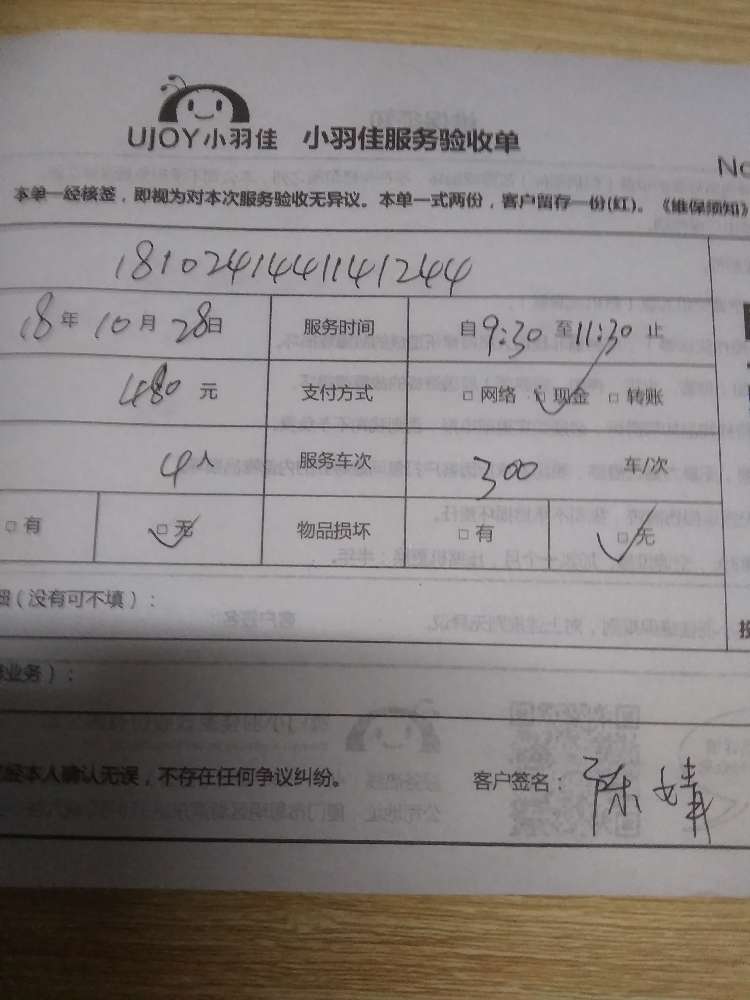 UJOY小羽佳 小羽佳服务验收单
No
本单一经核签，即视为对本次服务验收无异议。本单一式两份，客户留存一份(红)。《维保须知》
1810241441141244
18年 10月 28日 服务时间 自9:30至11:30止
480元 支付方式 □网络 □现金 □转账
4人 服务车次 300 车/次
□有 □无 物品损坏 □有 □无
(没有可不填)：
业务)：
经本人确认无误，不存在任何争议纠纷。 客户签名：陈婧